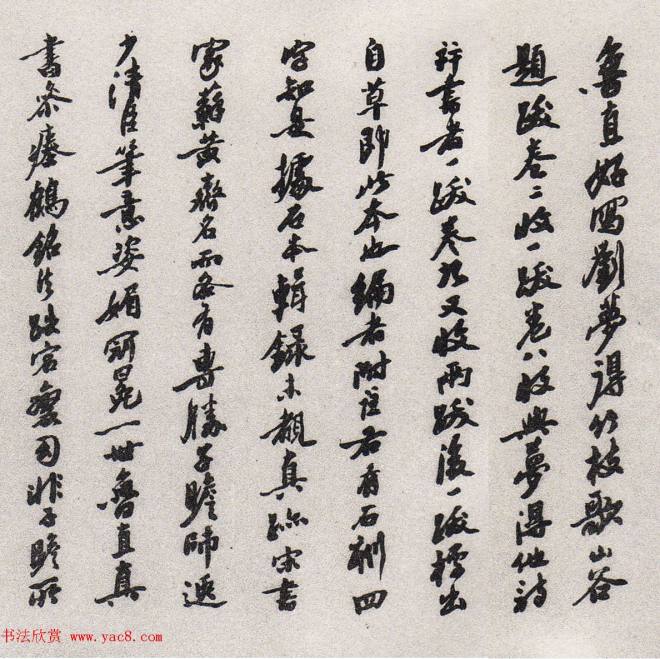 魯直好寫劉夢得竹枝歌山谷
題跋卷二收一跋卷八收與夢得他詩
行書者一跋卷九又收兩跋後一跋標出
自草即此本也編者附注君有石刻四
字知是據石本輯錄未觀真跡宋書
家蘇黃齊名而各有專勝子瞻師遜
少清臣筆意姿媚
一世魯直真
書參瘞鶴銘
非子瞻所
书法欣赏 www.yac8.com